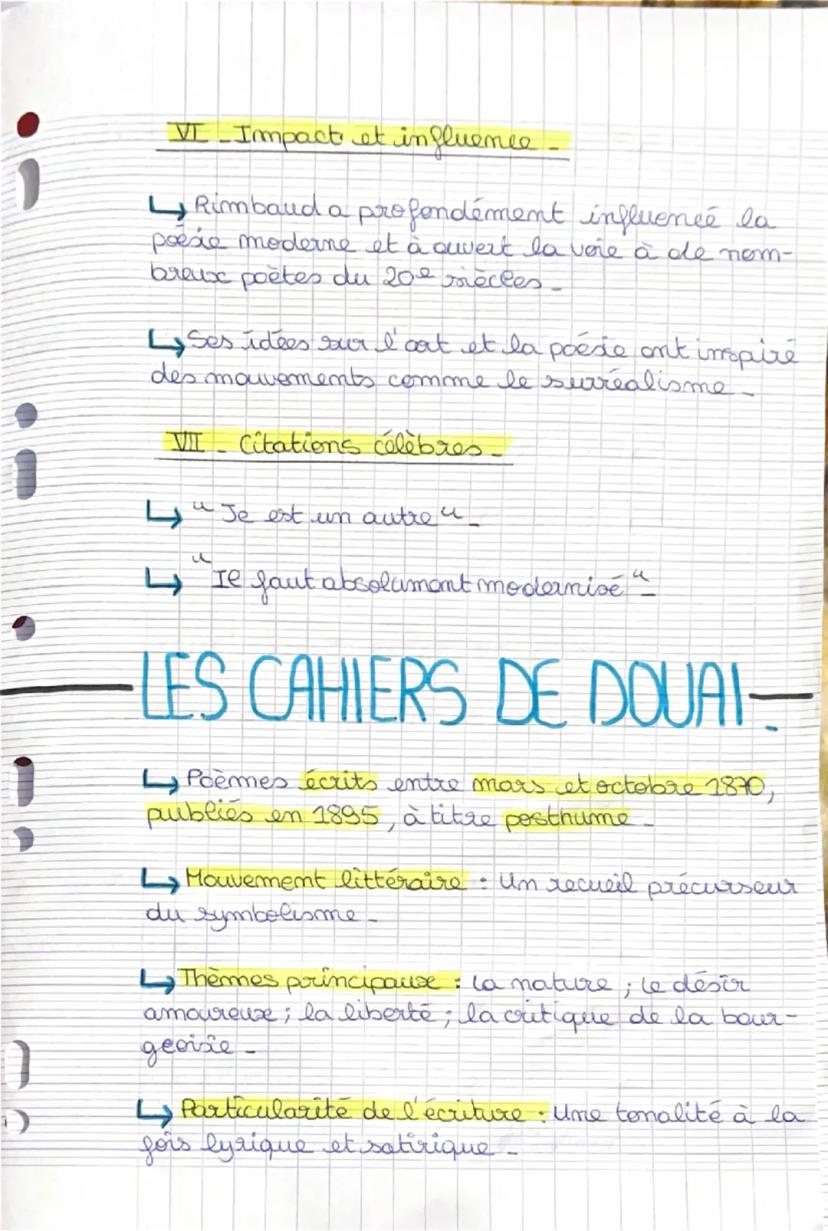 VI - Impact et influence -
↳ Rimbaud a profondément influencé la
poésie moderne et à ouvert la voie à de nom-
breux poètes du 20e siècles -
↳ Ses idées sur l'art et la poésie ont inspiré
des mouvements comme le surréalisme -
VII - Citations célèbres -
↳ "Je est un autre" -
↳ "Il faut absolument modernisé" -
LES CAHIERS DE DOUAI -
↳ Poèmes écrits entre mars et octobre 1870,
publiés en 1895, à titre posthume -
↳ Mouvement littéraire : Un recueil précurseur
du symbolisme -
↳ Thèmes principaux : la nature ; le désir
amoureux ; la liberté ; la critique de la bour-
geoisie -
↳ Particularité de l'écriture : Une tonalité à la
fois lyrique et satirique -